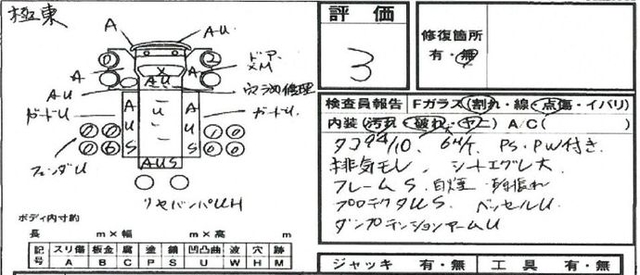 極東
評価
3
修復箇所
有・無
A
AU
A
ドア
XM
A
AU
A
AU
穴 修理
AU
ガードU
AUS
AUS
ガードU
フェンダU
AUS
リヤバンパUH
ボディ内寸約
長 m×幅 m×高 m
記号 スリ傷 板金 腐 塗 錆 凹凸曲 波 穴 跡
A B C P S U W H M
検査員報告 Fガラス(割れ・線・点傷・イバリ)
内装(汚れ・破れ・ヤニ) A/C( )
タコ94/10. PS・PW付き
排気モレ シートエグレ大
フレームS. 白煙
プロテクタUS ベッセルU
ダンプテンションアームU
ジャッキ 有・無 工具 有・無